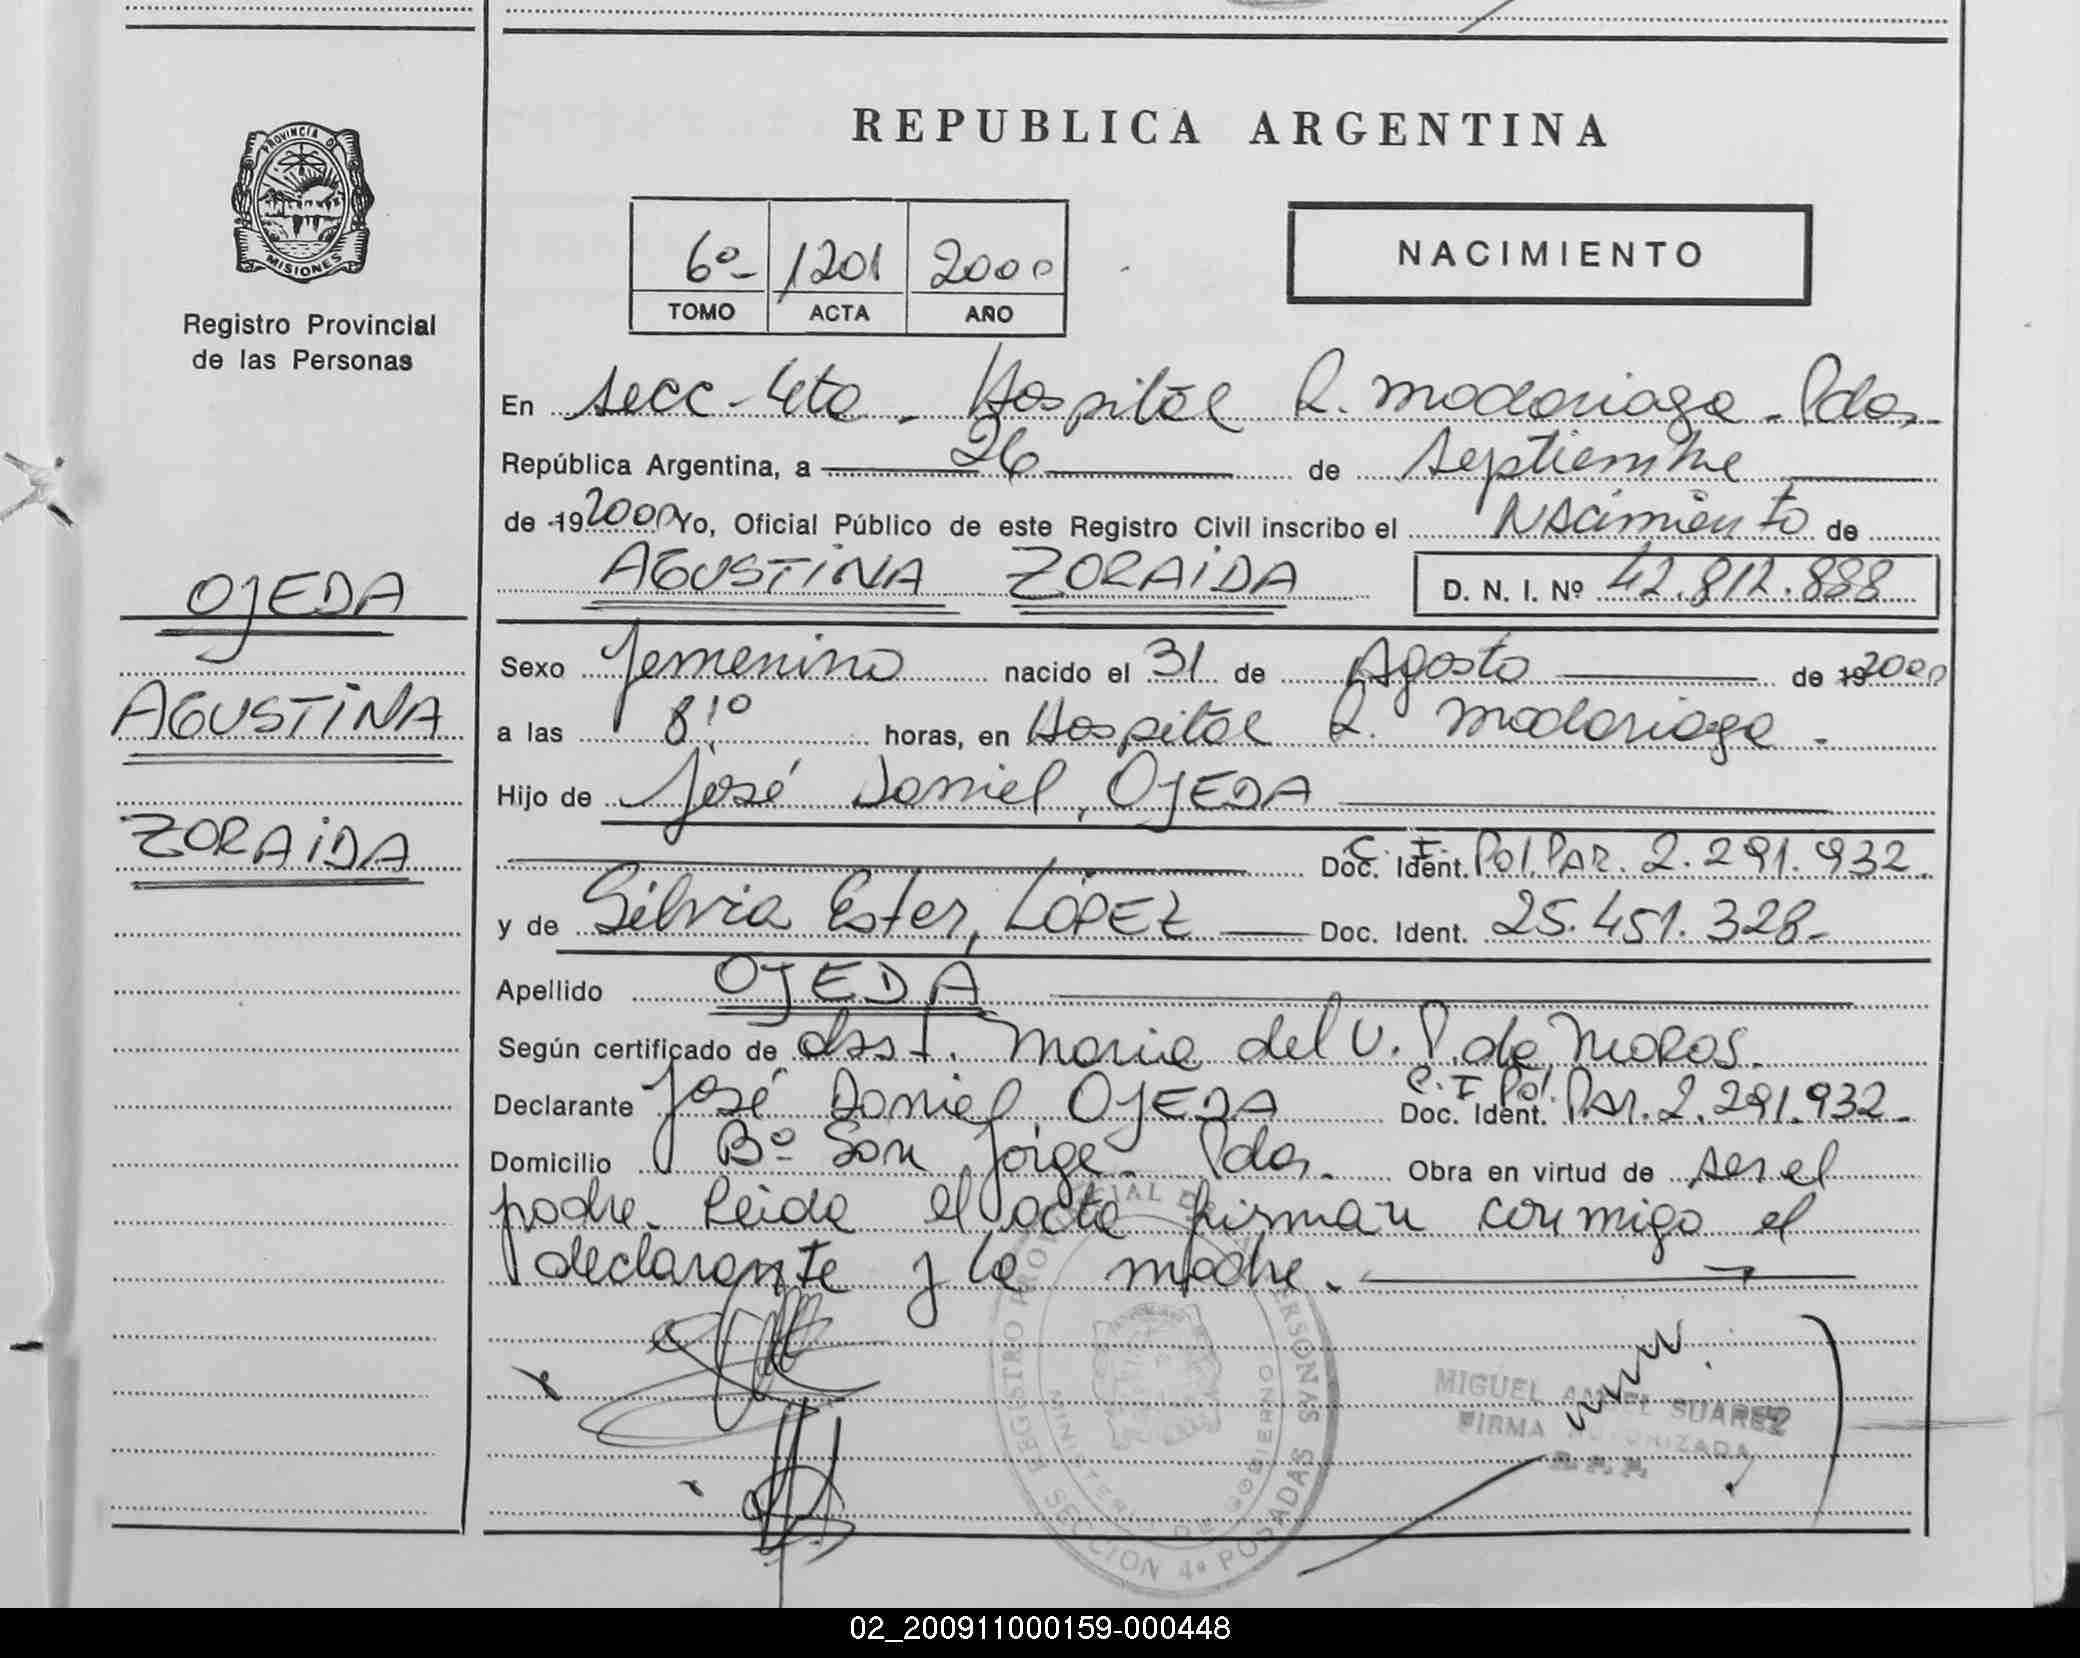 REPUBLICA ARGENTINA
PROVINCIA DE
MISIONES
Registro Provincial
de las Personas
6º- 1201 2000
TOMO ACTA AÑO
NACIMIENTO
En secc-4ta. Hospital R. Madariaga - Pdas.
República Argentina, a 26 de septiembre
de 19 2000 Yo, Oficial Público de este Registro Civil inscribo el Nacimiento de
AGUSTINA ZORAIDA D. N. I. Nº 42.812.888
OJEDA
AGUSTINA
ZORAIDA
Sexo femenino nacido el 31 de Agosto de 19 2000
a las 8,10 horas, en Hospital R. Madariaga -
Hijo de José Daniel, OJEDA
C. I.
Doc. Ident. Pol. Par. 2.291.932.
y de Silvia Ester, LÓPEZ Doc. Ident. 25.451.328-
Apellido OJEDA
Según certificado de Obst. Maria del V. P. de
Declarante José Daniel OJEDA C. I Pol. Doc. Ident. Par. 2.291.932-
Domicilio Bº San Jorge - Pdas. Obra en virtud de ser el
padre. Leida el acta firman conmigo el
declarante y la madre.
REGISTRO PROVINCIAL DE LAS PERSONAS
MINISTERIO DE GOBIERNO
SECCION 4ª POSADAS
MIGUEL ANGEL SUAREZ
FIRMA AUTORIZADA
R. P. P.
02_200911000159-000448